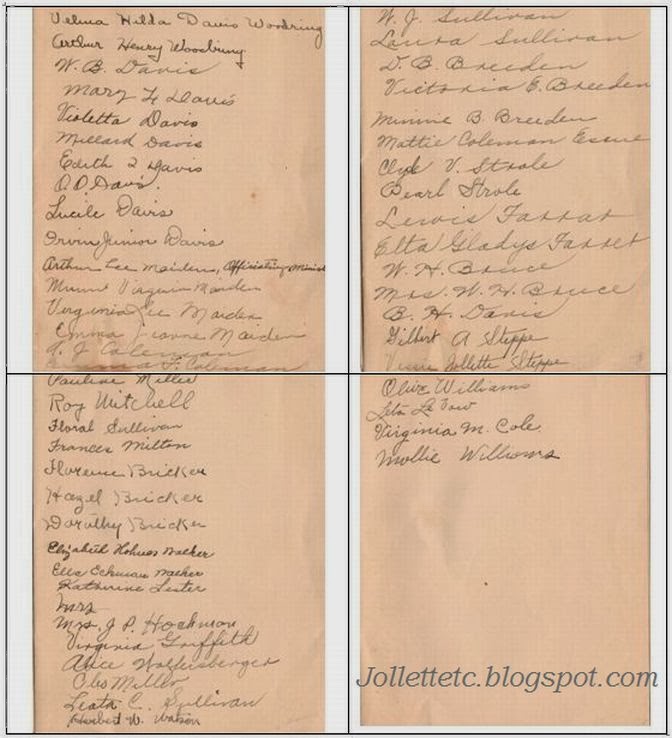 Velma Hilda Davis Woodring
Arthur Henry Woodring
W. B. Davis
Mary F. Davis
Violetta Davis
Millard Davis
Edith L Davis
O. D. Davis.
Lucile Davis
Irvin Junior Davis
Arthur Lee Maiden, Officiating Minist
Minnie Virginia Maiden
Virginia Lee Maiden
Emma Jeanne Maiden
A. J. Coleman
F. Coleman
W. J. Sullivan
Laura Sullivan
D. B. Breeden
Victoria E. Breeden
Minnie B. Breeden
Mattie Coleman
Clyde V. Strole
Pearl Strole
Lewis Farrar
Etta Gladys Farrer
W. H. Bruce
Mrs. W. H. Bruce
B. H. Davis
Gilbert A Steppe
Vessie Jollette Steppe
Pauline Miller
Roy Mitchell
Floral Sullivan
Frances Milton
Florence Bricker
Hazel Bricker
Dorothy Bricker
Elizabeth Holmes Walker
Ella Eckman Walker
Katherine Lester
Mrs
Mrs. J. P. Hockman
Virginia Griffith
Alice Wolfersberger
Cleo Miller
Leota C. Sullivan
Herbert W. Watson
Olive Williams
Leta La Vow
Virginia M. Cole
Mollie Williams
Jollettetc.blogspot.com